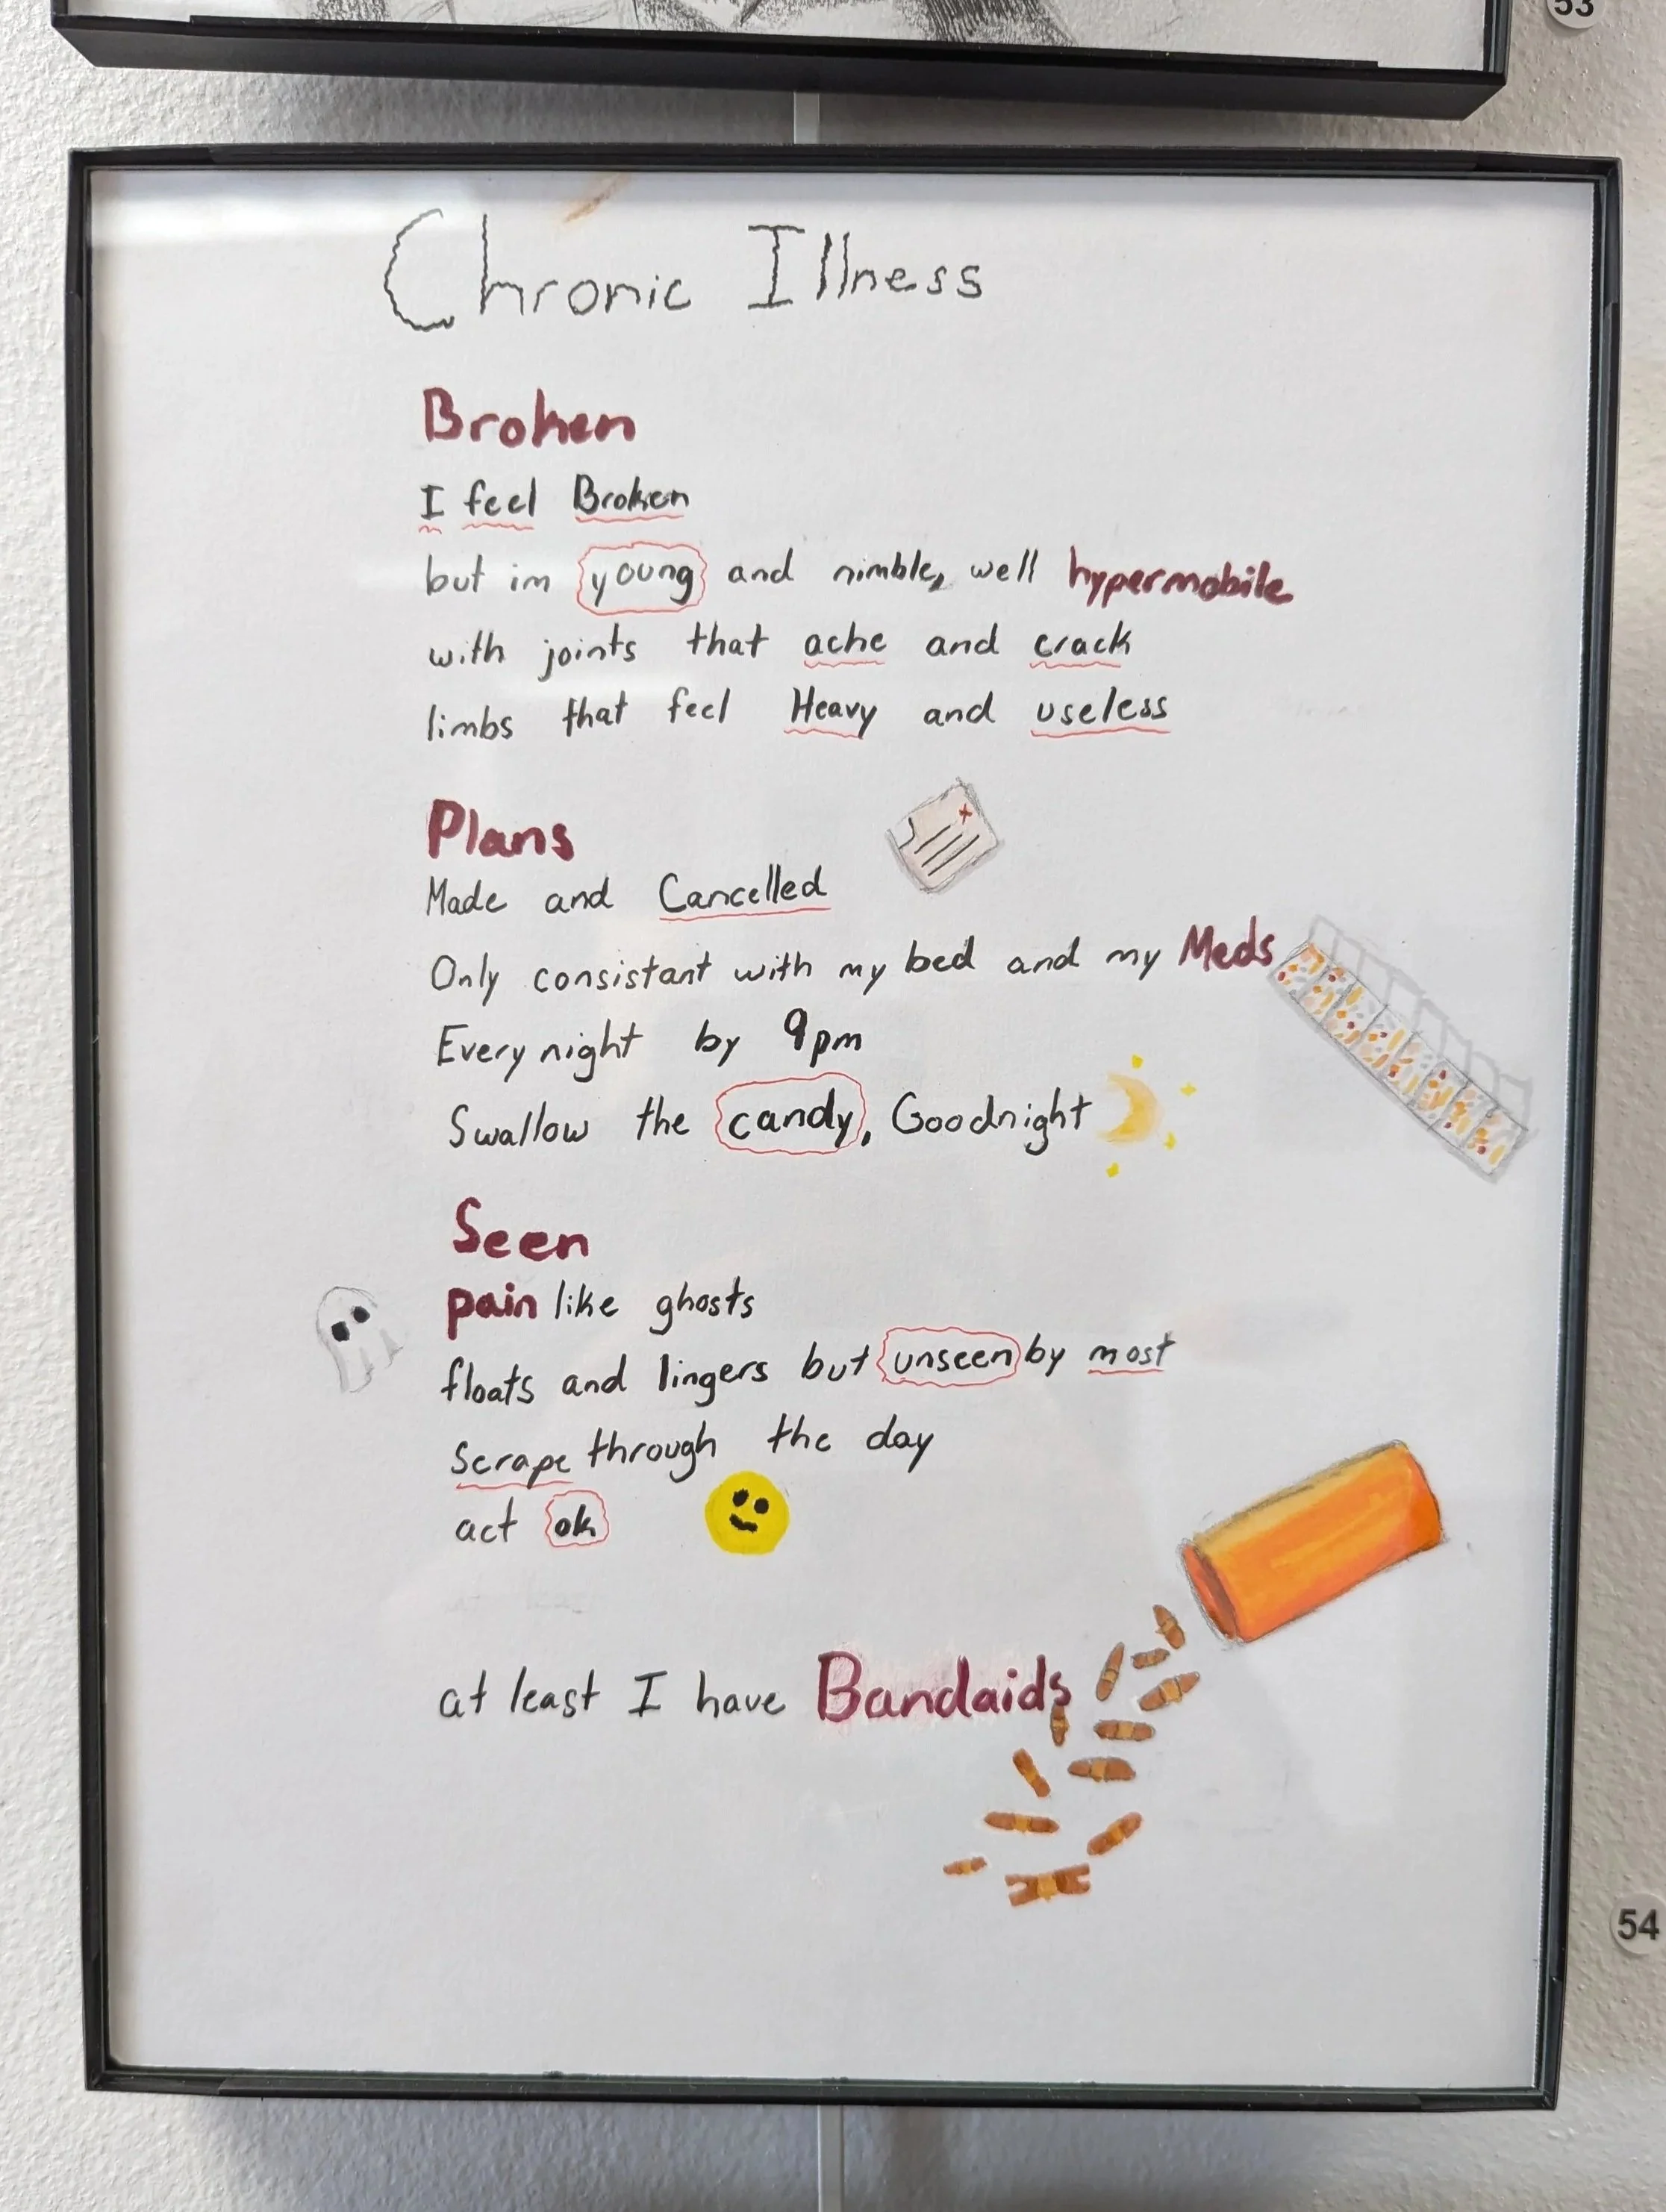 53
Chronic Illness
Broken
I feel Broken
but im young and nimble, well hypermobile
with joints that ache and crack
limbs that feel Heavy and useless
Plans
Made and Cancelled
Only consistant with my bed and my Meds
Every night by 9pm
Swallow the candy, Goodnight
Seen
pain like ghosts
floats and lingers but unseen by most
scrape through the day
act ok
at least I have Bandaids
54